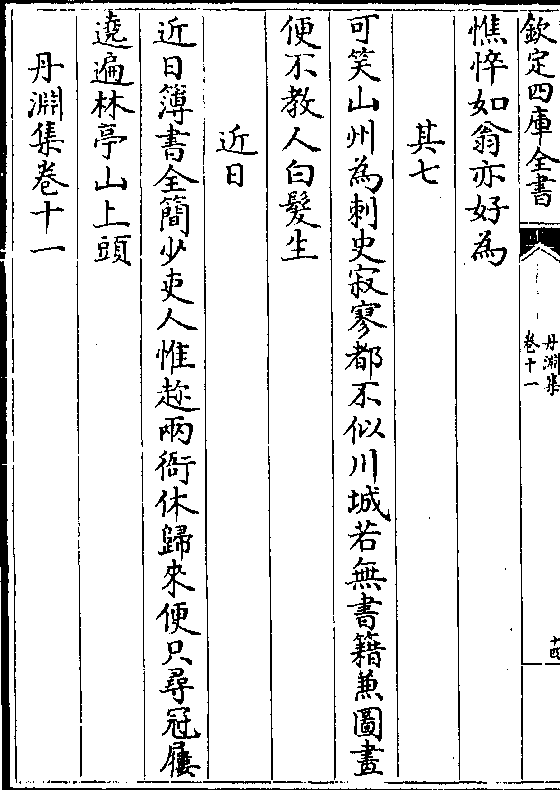 欽定四庫全書
丹淵集
卷十一
十四
憔悴如翁亦好為
其七
可笑山州為刺史寂寥都不似川城若無書籍兼圖畫
便不教人白髮生
近日
近日簿書全簡少吏人惟趂兩衙休歸來便只尋冠屨
遶遍林亭山上頭
丹淵集卷十一